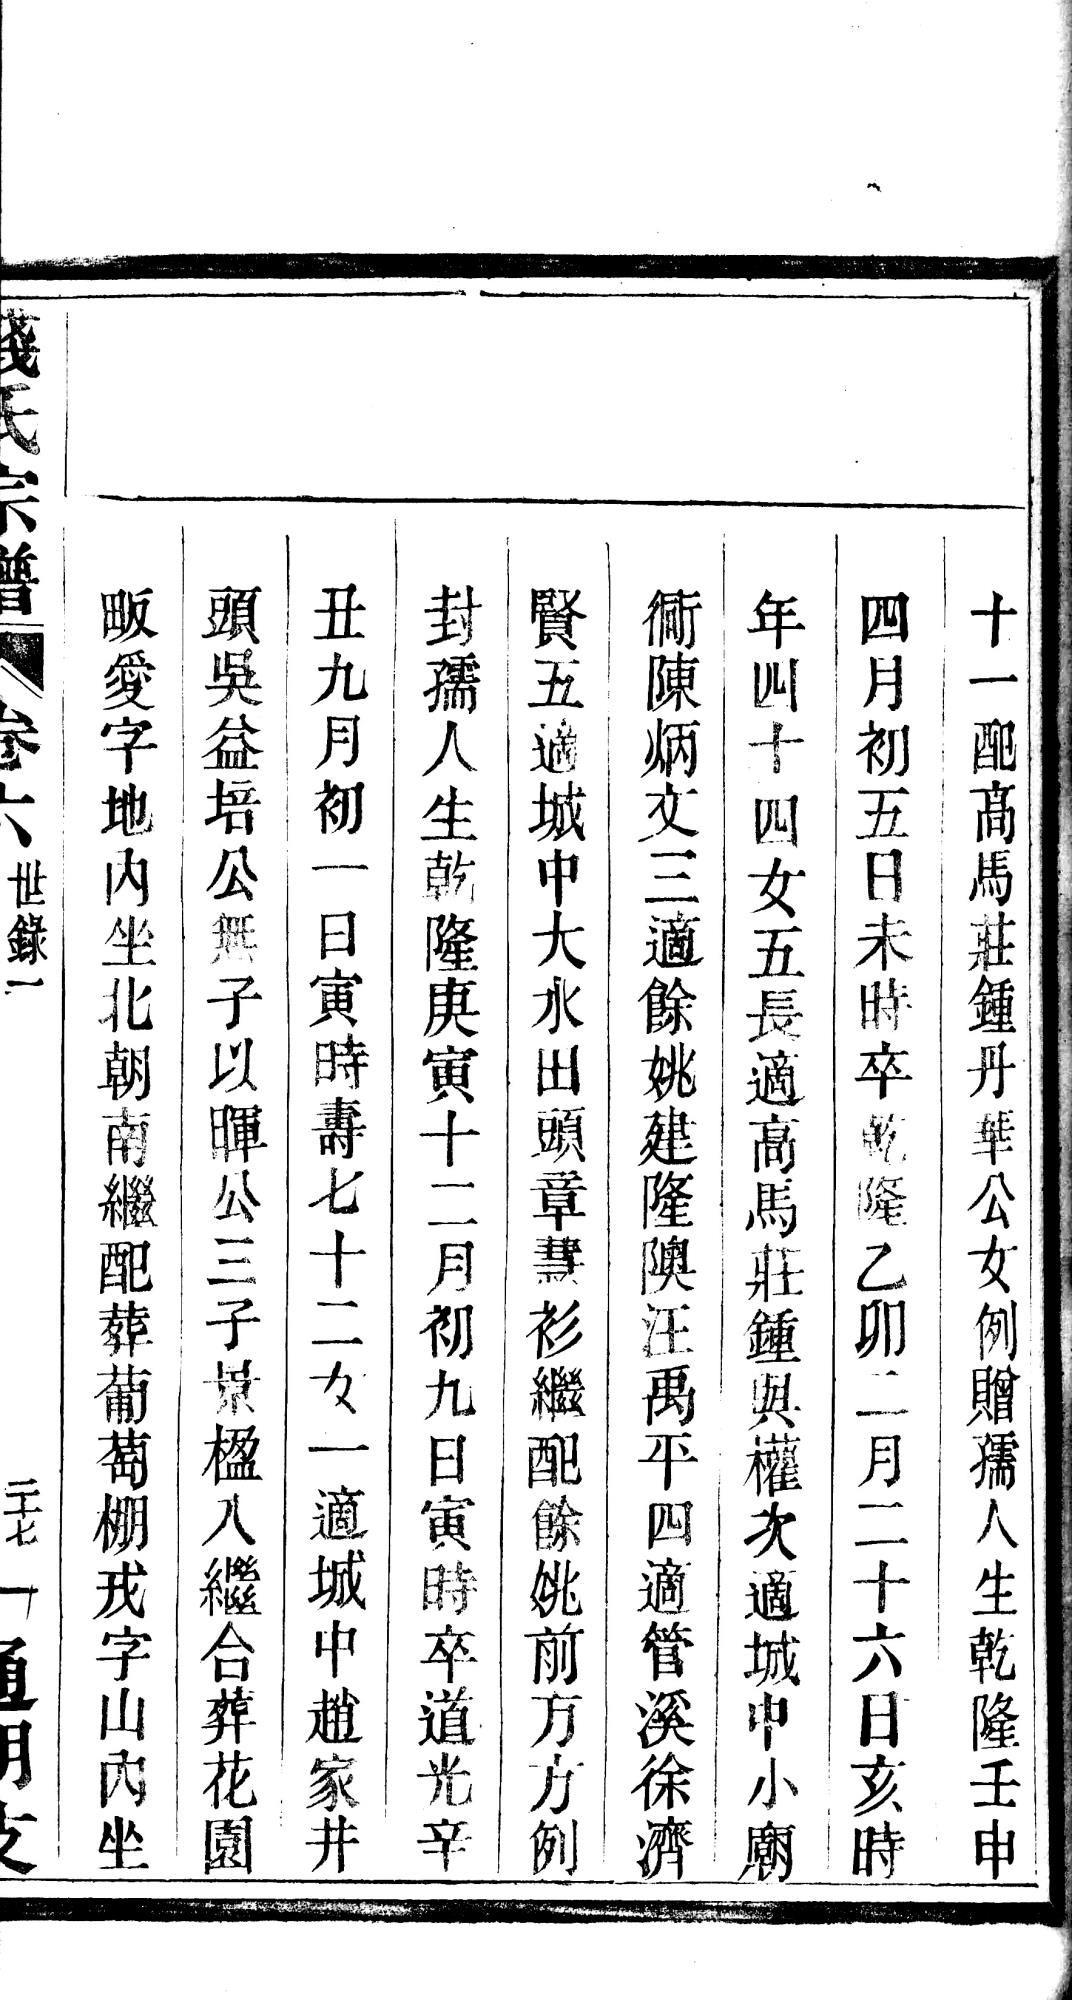 十一配高馬莊鍾丹華公女例贈孺人生乾隆壬申
四月初五日未時卒乾隆乙卯二月二十六日亥時
年四十四女五長適高馬莊鍾與權次適城中小廟
衕陳炳文三適餘姚建隆隩汪禹平四適管溪徐濟
賢五適城中大水田頭章慧衫繼配餘姚前方方例
封孺人生乾隆庚寅十二月初九日寅時卒道光辛
丑九月初一日寅時壽七十二女一適城中趙家井
頭吳益培公無子以暉公三子景楹入繼合葬花園
畈愛字地內坐北朝南繼配葬葡萄棚戎字山內坐
錢氏宗譜 卷六 世錄一 二十七 通明支